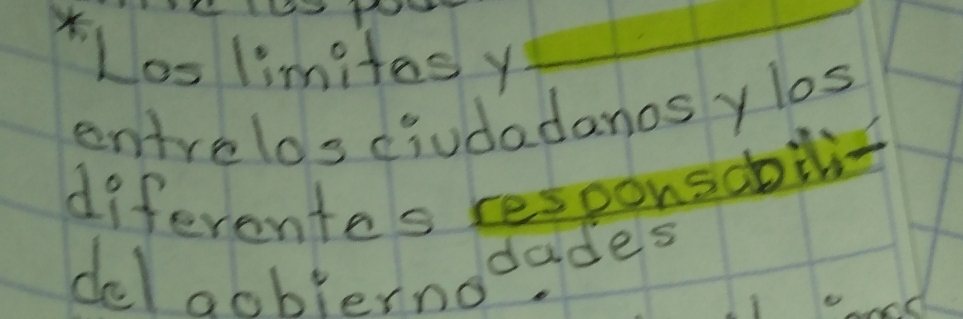 * Los limites y
entre los ciudadanos y los
diferentes responsabili-
dades
del gobierno.